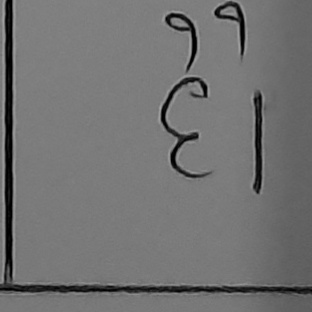 ٩٩
٤١